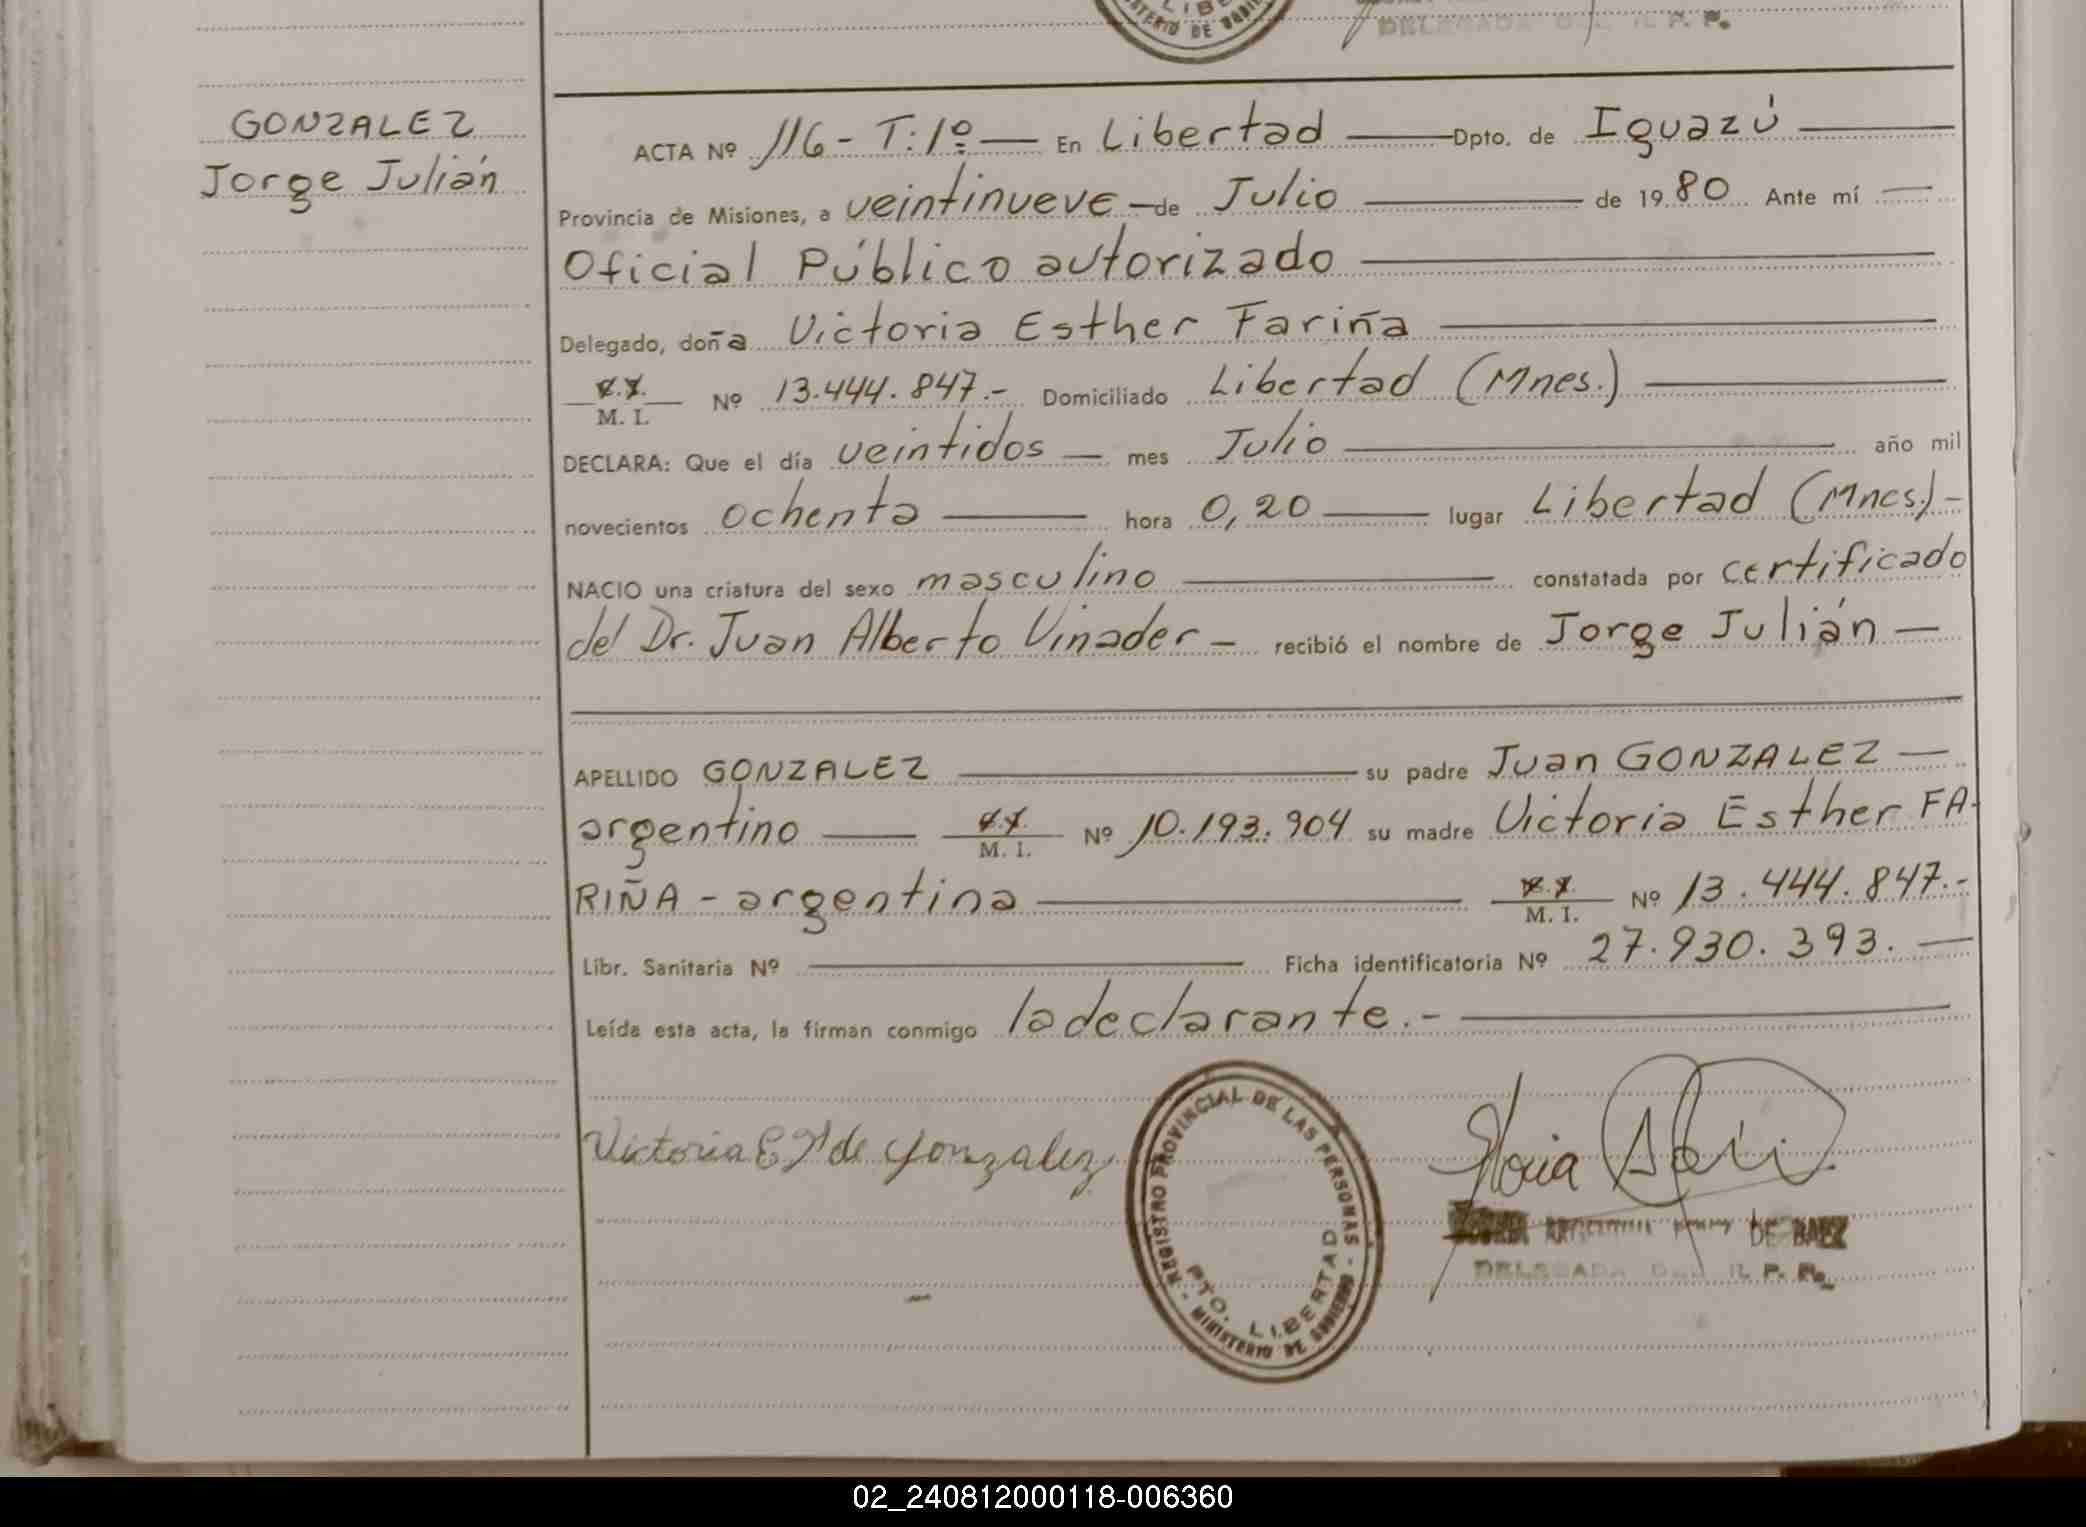 LIBE
MINISTERIO DE GOBIE
DELEGADA DEL R. P. P.
GONZALEZ
Jorge Julián
ACTA Nº 116 - T: 1º — En Libertad — Dpto. de Iguazú —
Provincia de Misiones, a veintinueve — de Julio — de 1980 Ante mí —
Oficial Público autorizado —
Delegado, doña Victoria Esther Fariña —
M. I. Nº 13.444.847.- Domiciliado Libertad (Mnes.) —
DECLARA: Que el día veintidos — mes Julio — año mil
novecientos ochenta — hora 0,20 — lugar Libertad (Mnes.) -
NACIO una criatura del sexo masculino — constatada por certificado
del Dr. Juan Alberto Vinader - recibió el nombre de Jorge Julián —
APELLIDO GONZALEZ — su padre Juan GONZALEZ —
argentino — M. I. Nº 10.193.904 su madre Victoria Esther FA-
RIÑA - argentina — M. I. Nº 13.444.847.-
Libr. Sanitaria Nº — Ficha identificatoria Nº 27.930.393. —
Leída esta acta, la firman conmigo la declarante.- —
Victoria E F de Gonzalez
REGISTRO PROVINCIAL DE LAS PERSONAS - MINISTERIO DE GOBIERNO -
PTO. LIBERTAD
DE BAEZ
DELEGADA DEL R. P. P.
02_240812000118-006360